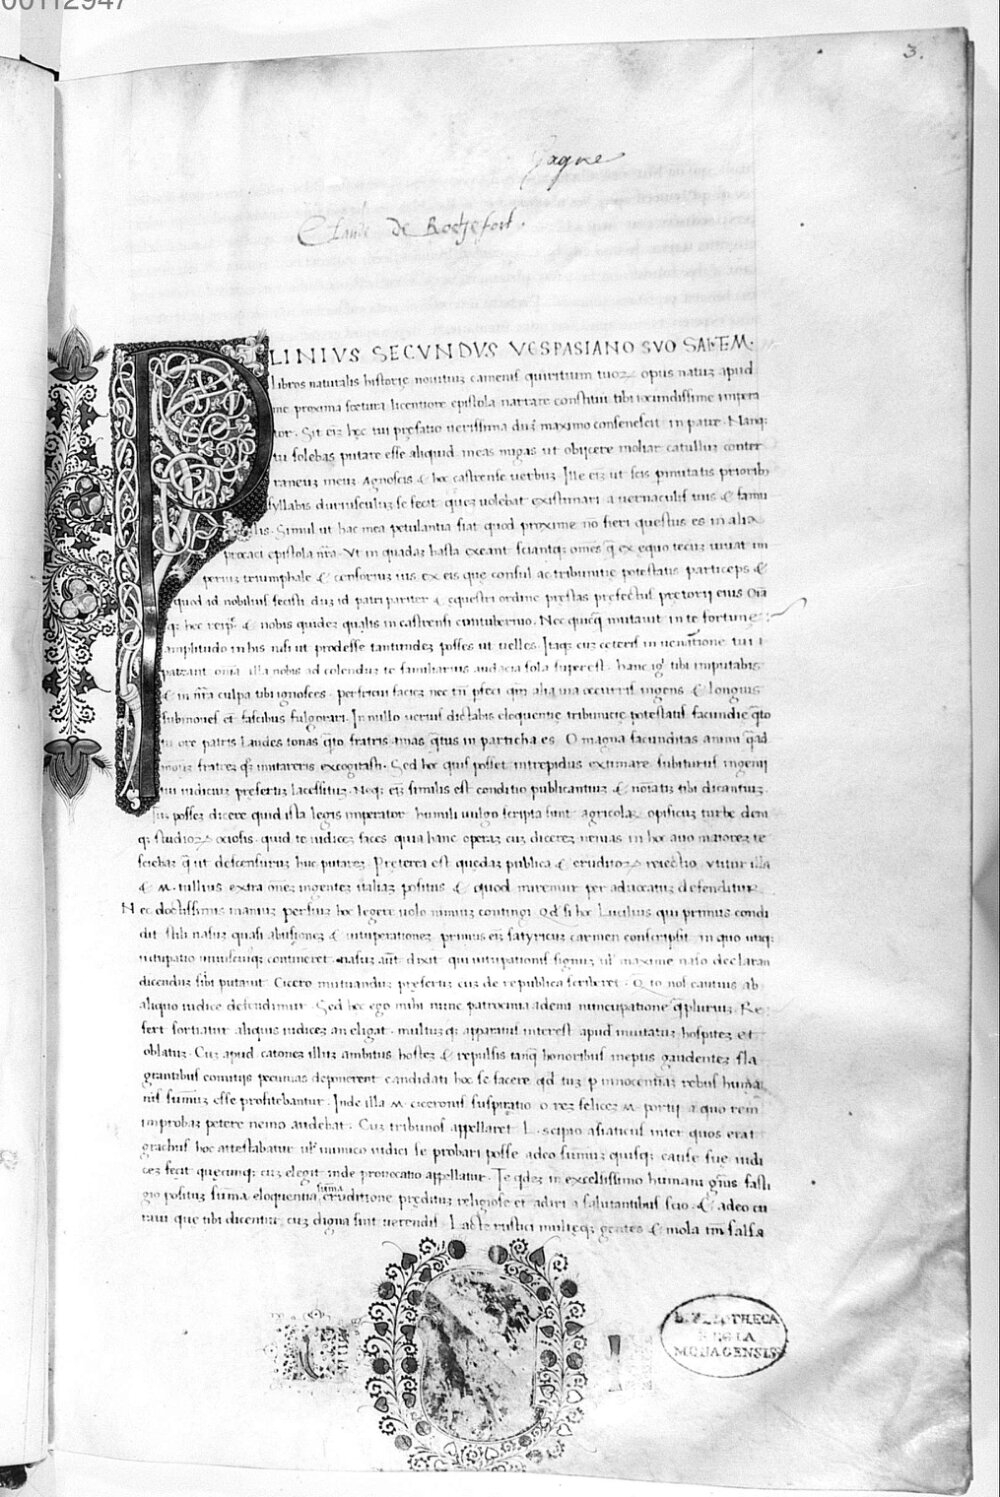 00112947
3.
Gagne
Claude de Rochefort.
PLINIVS SECVNDVS VESPASIANO SVO SALTEM.
libros naturalis historię nouitiuz camenis quiritium tuoꝝ opus natuz apud
me proxima foetura licentiore epistola narrare constitui tibi iocundissime impera
tor. Sit eiz hęc tui pręfatio uerissima duz maximo consenescit in patre. Nanqꝫ
tu solebas putare esse aliquid meas nugas ut obijcere moliar catulluz conter
raneuz meuz Agnoscis & hoc castrense uerbuz. Ille eiz ut scis pmutatis prioribꝫ
syllabis duriusculuz se fecit quez uolebat existimari a uernaculis tuis & famu
lis. Simul ut hac mea petulantia fiat quod proxime nō fieri questus es in alia
procaci epistola nr̄a. Vt in quadaz hasta exeant sciantqꝫ omēs q̄ ex equo tecuz uiuat im
periuz triumphale & censorius tuis ex eis que consul ac tribunitię potestatis particeps &
quod id nobilius fecisti duz id patri pariter & equestri ordine pręstas prefectus pretorij eius Oīa
qꝫ hec reip. & nobis quidez qualis in castrensi contubernio. Nec quicq̄ mutauit in te fortunę
amplitudo in his nisi ut prodesse tantundez posses ut uelles. Itaqꝫ cuz ceteris in uenerationē tui
pateant omīa illa nobis ad colenduz te familiarius audacia sola superest. hanc igr̄ tibi imputabis
& in nr̄a culpa tibi ignosces. perfricui faciez nec tn̄ pfeci qm̄ alia uia occurris ingens & longius
submoues et fascibus fulgorari. In nullo uerius dictabis eloquentię tribunicię potestatis facundię q̄to
tu ore patris laudes tonas q̄to fratris amas q̄tus in particha es. O magna facunditas animi q̄ad
moduz fratrez qꝫ imitareris excogitasti. Sed hęc quis posset intrepidus extimare subiturus ingenij
tui iudiciuz pręsertiz lacessituz. Neqꝫ eiz similis est conditio publicantiuz & noīatis tibi dicantiuz.
Tuz possez dicere quid ista legis imperator humili uulgo scripta sunt agricolaꝝ opificuz turbę deni
qꝫ studioꝝ ociosis. quid te iudicez faces quia hanc operaz cuz dicerez nenias in hoc auo maiorez te
sciebaz q̄ ut descensuruz huc putarez. Pręterea est quedaz publica & eruditoꝝ reiectio utitur illa
& M. tullius extra omēz ingenteᴢ italiaz positus & quod miremur per aduocatuz defenditur
Nec doctissimis manius persius hęc legere uolo nimiuz contingi Qd si hoc Lucilius qui primus condi
dit stili nasuz quasi abusionez & uituperationez primus eiz satyricuz carmen conscripsit in quo utiqꝫ
uitupatio uniuscuiusqꝫ contineret. nasuz aūt dixit qui uitupationis signuz ul' maxime naso declaran
dicenduz sibi putauit. Cicero mutuanduz pręsertiz cuz de republica scriberet. Q̄to nos cautius ab
aliquo iudice defendimur. Sed hęc ego mihi nunc patrocinia ademi nuncupatione q̄ pluriuz. Re
fert sortiatur aliquis iudicez an eligat. multuzqꝫ apparatus interest apud inuitatuz hospitez et
oblatuz. Cuz apud catonez illuz ambitus hostez & repulsis tanq̄ honoribus ineptis gaudentez fla
grantibus comitijs pecunias deponerent candidati hoc se facere qd tuz p innocentiaz rebus huma
nis sumuz esse profitebantur. Inde illa M. ciceronis suspiratio o rez felicez M. portij a quo rem
improbaz petere nemo audebat. Cuz tribunos appellaret L. scipio asiaticus inter quos erat
grachus hoc attestabatur ul' inimico iudici se probari posse adeo sumuz quisqꝫ cause suę iudi
cez fecit quęcunqꝫ cuz elegit inde prouocatio appellatur. Te qdez in excelsissimo humani gn̄is fasti
gio posituz suma eloquentia suma eruditione prędituz religiose et adiri a salutantibus scio. & adeo cu
raui que tibi dicentur cuz digna sint uerendis Lacte rustici multęqꝫ gentes & mola tm̄ salsa
BIBLIOTHECA
REGIA
MONACENSIS